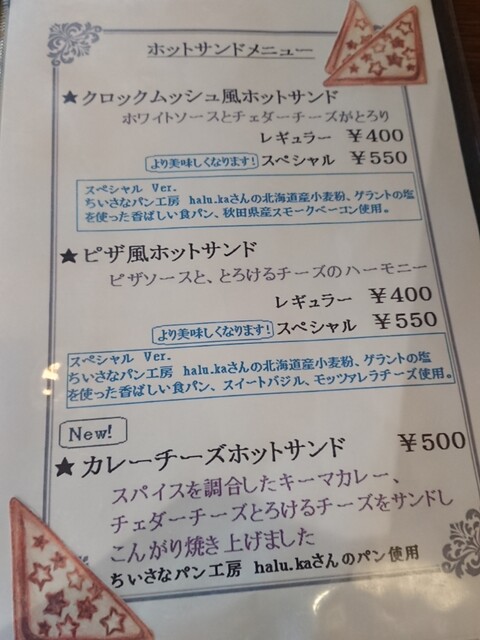 ホットサンドメニュー
★クロックムッシュ風ホットサンド
ホワイトソースとチェダーチーズがとろり
レギュラー ￥400
より美味しくなります! スペシャル ￥550
スペシャル Ver.
ちいさなパン工房 halu.kaさんの北海道産小麦粉、ゲラントの塩
を使った香ばしい食パン、秋田県産スモークベーコン使用。
★ピザ風ホットサンド
ピザソースと、とろけるチーズのハーモニー
レギュラー ￥400
より美味しくなります! スペシャル ￥550
スペシャル Ver.
ちいさなパン工房 halu.kaさんの北海道産小麦粉、ゲラントの塩
を使った香ばしい食パン、スイートバジル、モッツァレラチーズ使用。
New!
★カレーチーズホットサンド ￥500
スパイスを調合したキーマカレー、
チェダーチーズとろけるチーズをサンドし
こんがり焼き上げました
ちいさなパン工房 halu.kaさんのパン使用